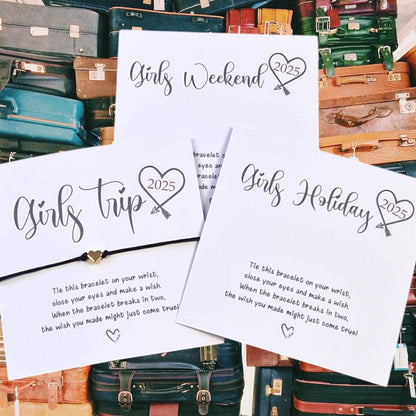 Girls Weekend 2025
bracelet on
Girls trip 2025
Tie this bracelet on your wrist,
close your eyes and make a wish
When the bracelet breaks in two,
the wish you made might just come true!
Girls Holiday 2025
Tie this bracelet on your wrist,
close your eyes and make a wish.
When the bracelet breaks in two,
the wish you made might just come true!